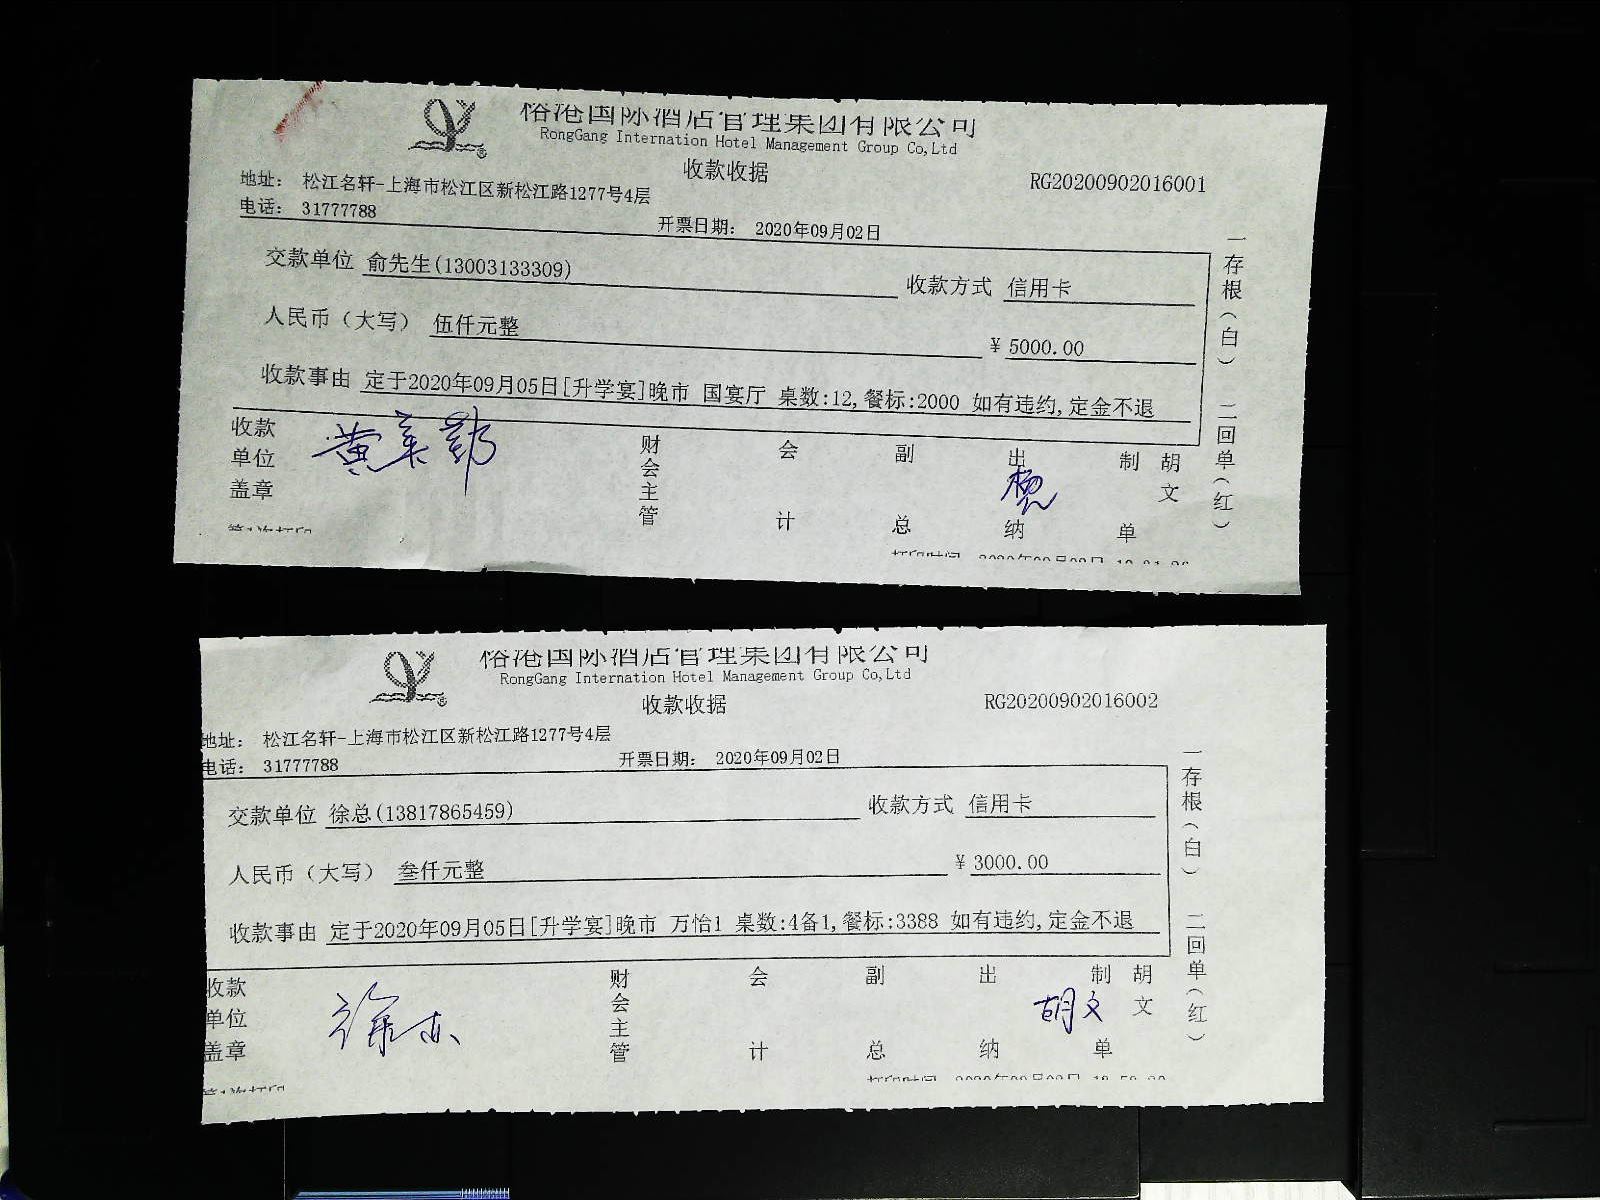 榕港国际酒店管理集团有限公司
RongGang Internation Hotel Management Group Co,Ltd
收款收据
RG20200902016001
地址： 松江名轩-上海市松江区新松江路1277号4层
电话： 31777788
开票日期： 2020年09月02日
交款单位 俞先生(13003133309)
收款方式 信用卡
人民币（大写） 伍仟元整
￥ 5000.00
收款事由 定于2020年09月05日[升学宴]晚市 国宴厅 桌数:12,餐标:2000 如有违约,定金不退
收款单位盖章
财会主管
会计
副总
出纳
制单
胡文
第1次打印
一存根（白） 二回单（红）
榕港国际酒店管理集团有限公司
RongGang Internation Hotel Management Group Co,Ltd
收款收据
RG20200902016002
地址： 松江名轩-上海市松江区新松江路1277号4层
电话： 31777788
开票日期： 2020年09月02日
交款单位 徐总(13817865459)
收款方式 信用卡
人民币（大写） 叁仟元整
￥ 3000.00
收款事由 定于2020年09月05日[升学宴]晚市 万怡1 桌数:4备1,餐标:3388 如有违约,定金不退
收款单位盖章
财会主管
会计
副总
出纳
制单
胡文
胡文
第1次打印
一存根（白） 二回单（红）